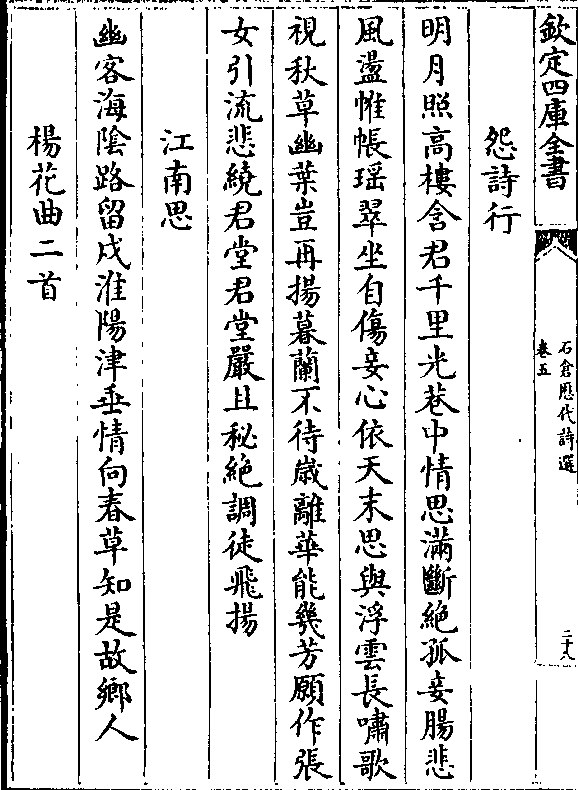 欽定四庫全書
石倉厯代詩選
卷五
二十八
怨詩行
明月照高樓含君千里光巷中情思滿斷絶孤妾腸悲
風盪帷帳瑶翠坐自傷妾心依天末思與浮雲長嘯歌
視秋草幽葉豈再揚暮蘭不待歳離華能幾芳願作張
女引流悲繞君堂君堂嚴且秘絶調徒飛揚
江南思
幽客海陰路留戍淮陽津垂情向春草知是故鄉人
楊花曲二首